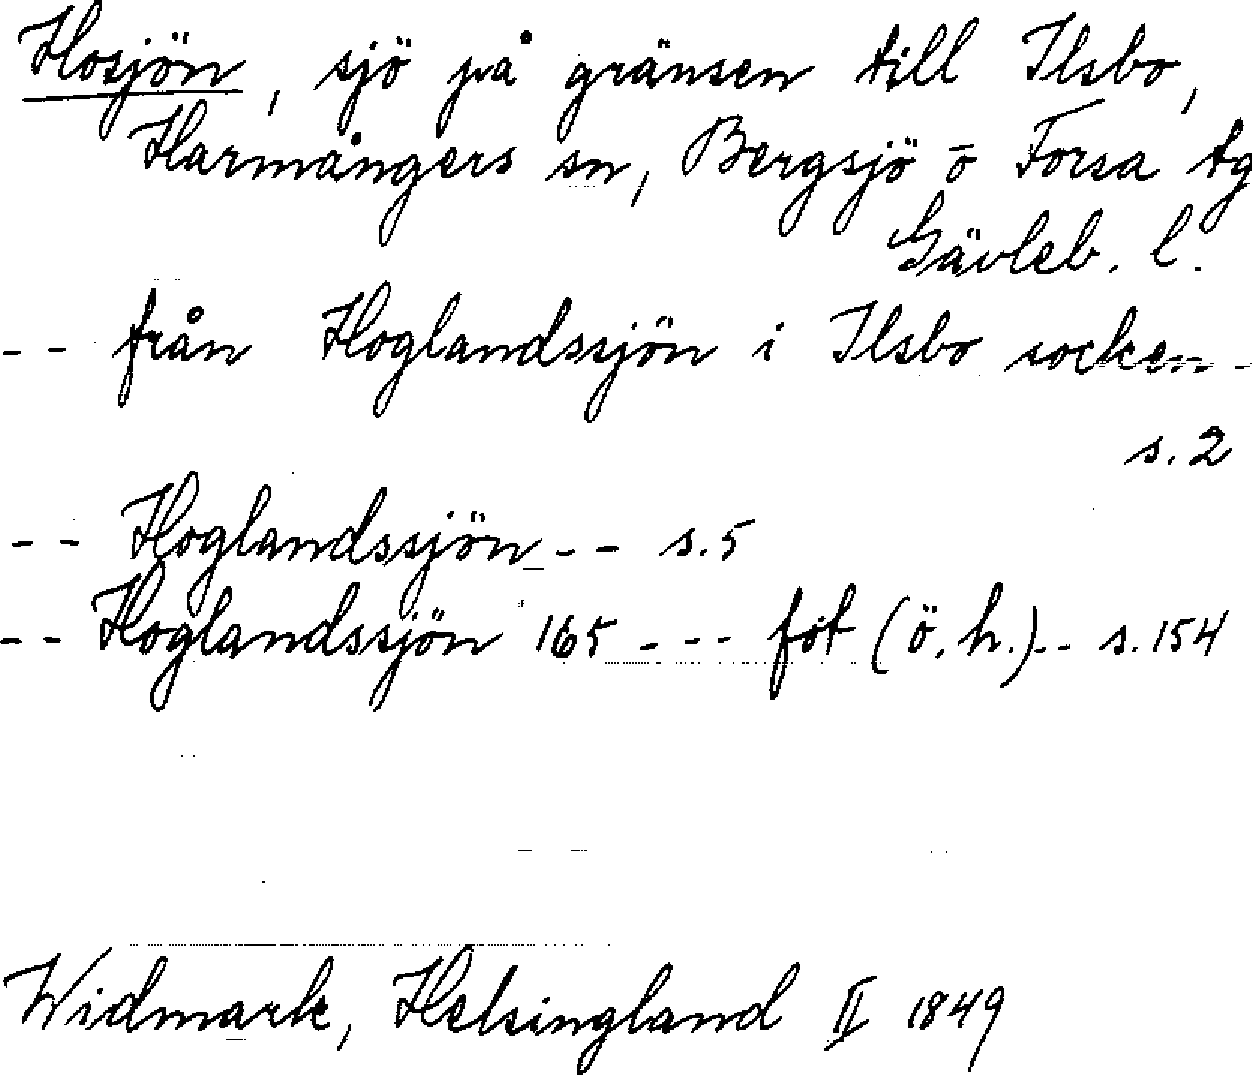 Hosjön, sjö på gränsen till Ilsbo,
Harmångers sn, Bergsjö o Forsa tg
Gävleb. l.
-- från Hoglandssjön i Ilsbo socken -
s. 2
-- Hoglandssjön -- s. 5
-- Hoglandssjön 165 --- fot (ö. h.) -- s. 154
Widmark, Helsingland II 1849